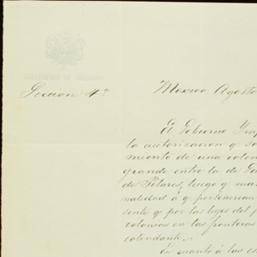 Seccion 4ª
México Agosto
El Gobierno
la autorizacion q. so
miento de una colon
grande entre la de
de Pilares, luego q.
nalidad á q. pertenezcan
sente q. por las leyes del
colonias en las fronteras
colendante.
En cuanto á las